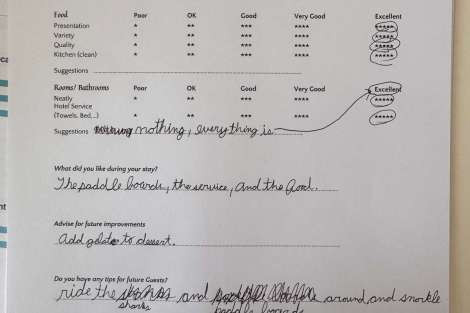 Food Poor OK Good Very Good Excellent
Presentation * ** *** **** *****
Variety * ** *** **** *****
Quality * ** *** **** *****
Kitchen (clean) * ** *** **** *****
Suggestions
Rooms/ Bathrooms Poor OK Good Very Good Excellent
Neatly * ** *** **** *****
Hotel Service
(Towels, Bed...) * ** *** **** *****
Suggestions nothing, everything is
What did you like during your stay?
The paddle boards, the service, and the food.
Advise for future improvements
Add gelato to desert.
Do you have any tips for future Guests?
ride the and around, and snorkle
sharks paddle boards